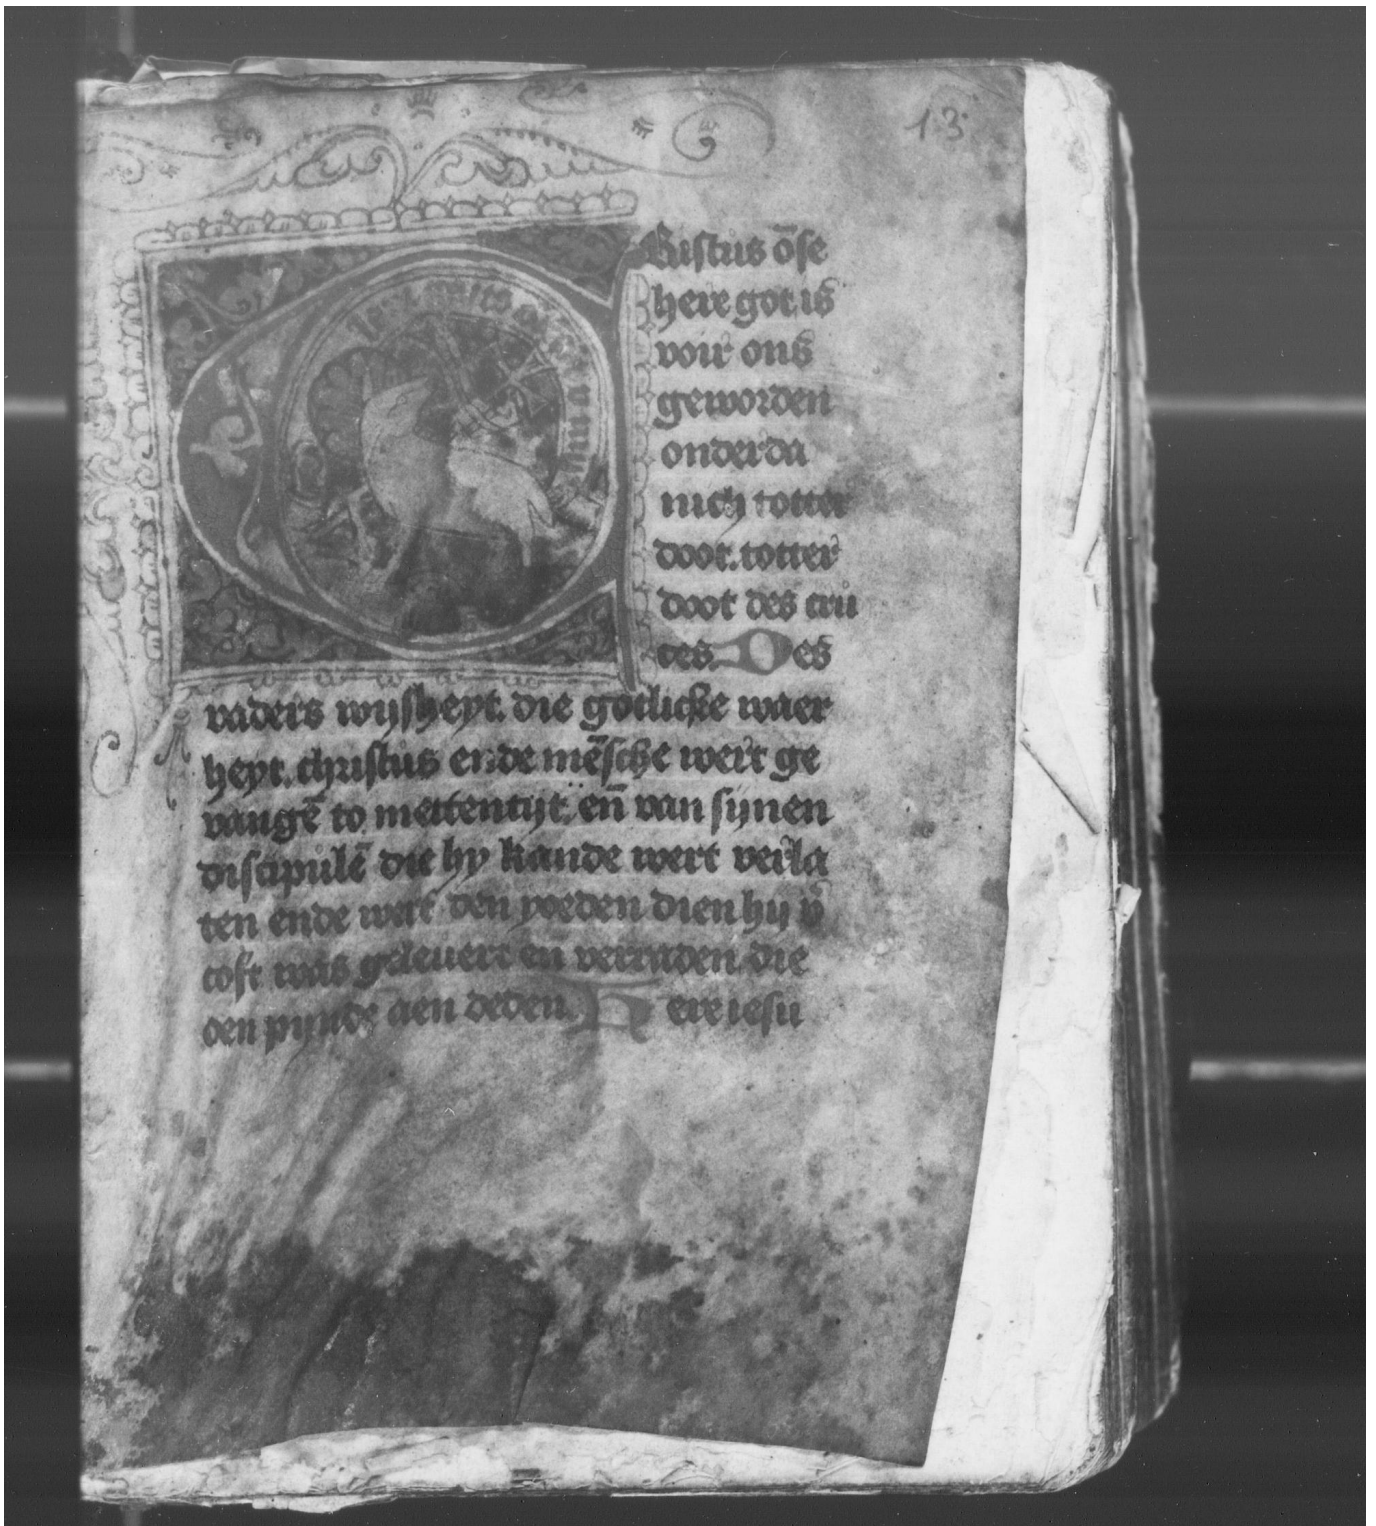 13
Cristus o̅se
here got is
voir ons
geworden
onderda
nich totter
doot. totter
doot des cru
ces Des
vaders wijsheyt. die gotlicke waer
heyt. christus ende me̅sche wert ge
vange̅ to mettentijt. en̅ van sijnen
discipule̅ die hy kande wert verla
ten ende wart den yoeden dien hij v̅
coft was geleuert en verraden die
oen pijnde aen deden. Here iesu